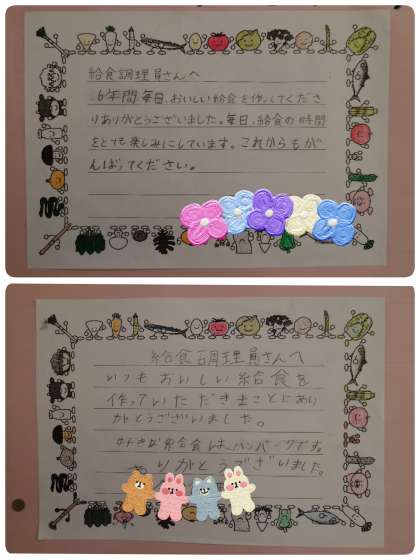 給食調理員さんへ
6年間毎日、おいしい給食を作ってくださ
りありがとうございました。毎日、給食の時間
をとても楽しみにしています。これからもが
んばってください。
給食調理員さんへ
いつもおいしい給食を
作っていただきまことにあり
がとうございました。
好きな給食は、ハンバーグです。
りがとうございました。